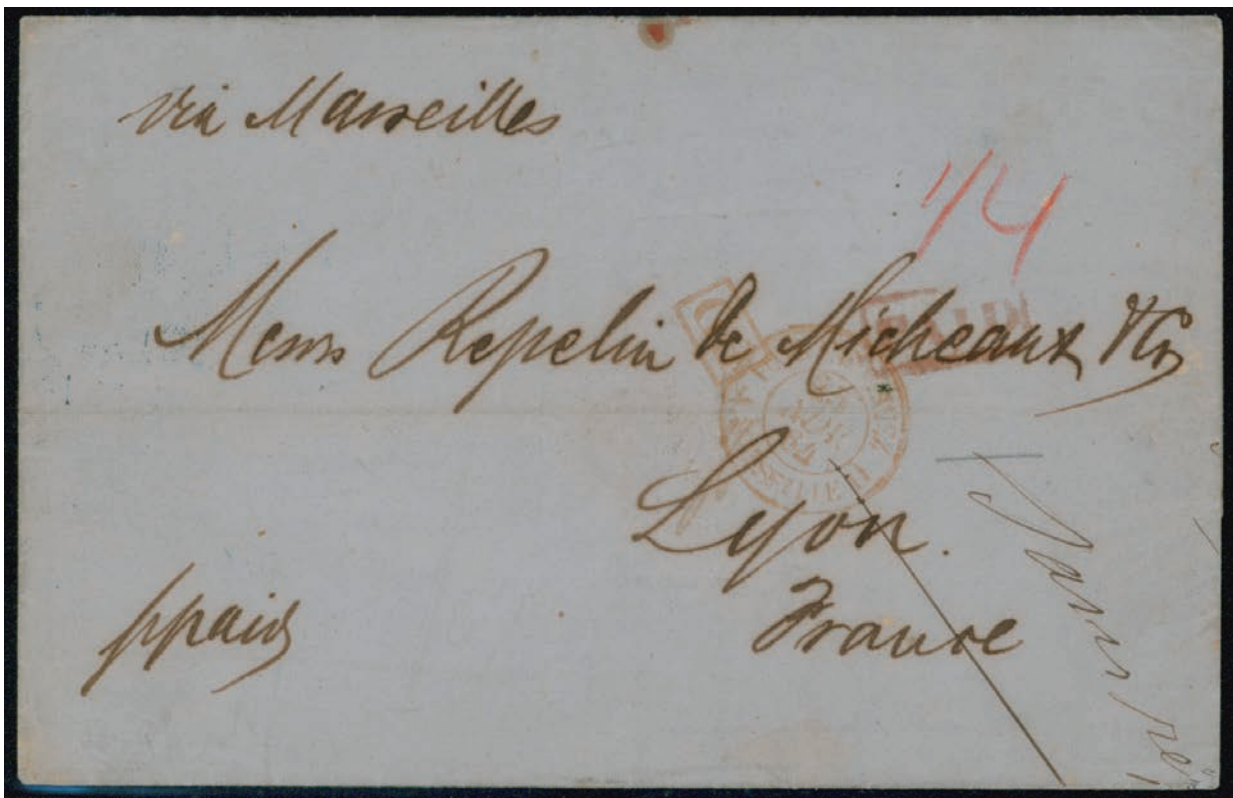 via Marseilles
1/4
Messrs Repelin de Micheaux & Co
Lyon.
France
ppaid